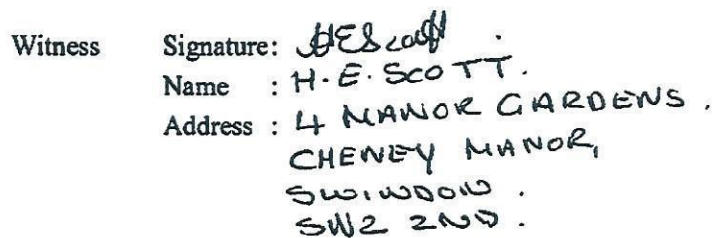 Witness Signature: HEScott.
Name : H.E. SCOTT.
Address : 4 MANOR GARDENS.
CHENEY MANOR,
SWINDON.
SW2 2ND.